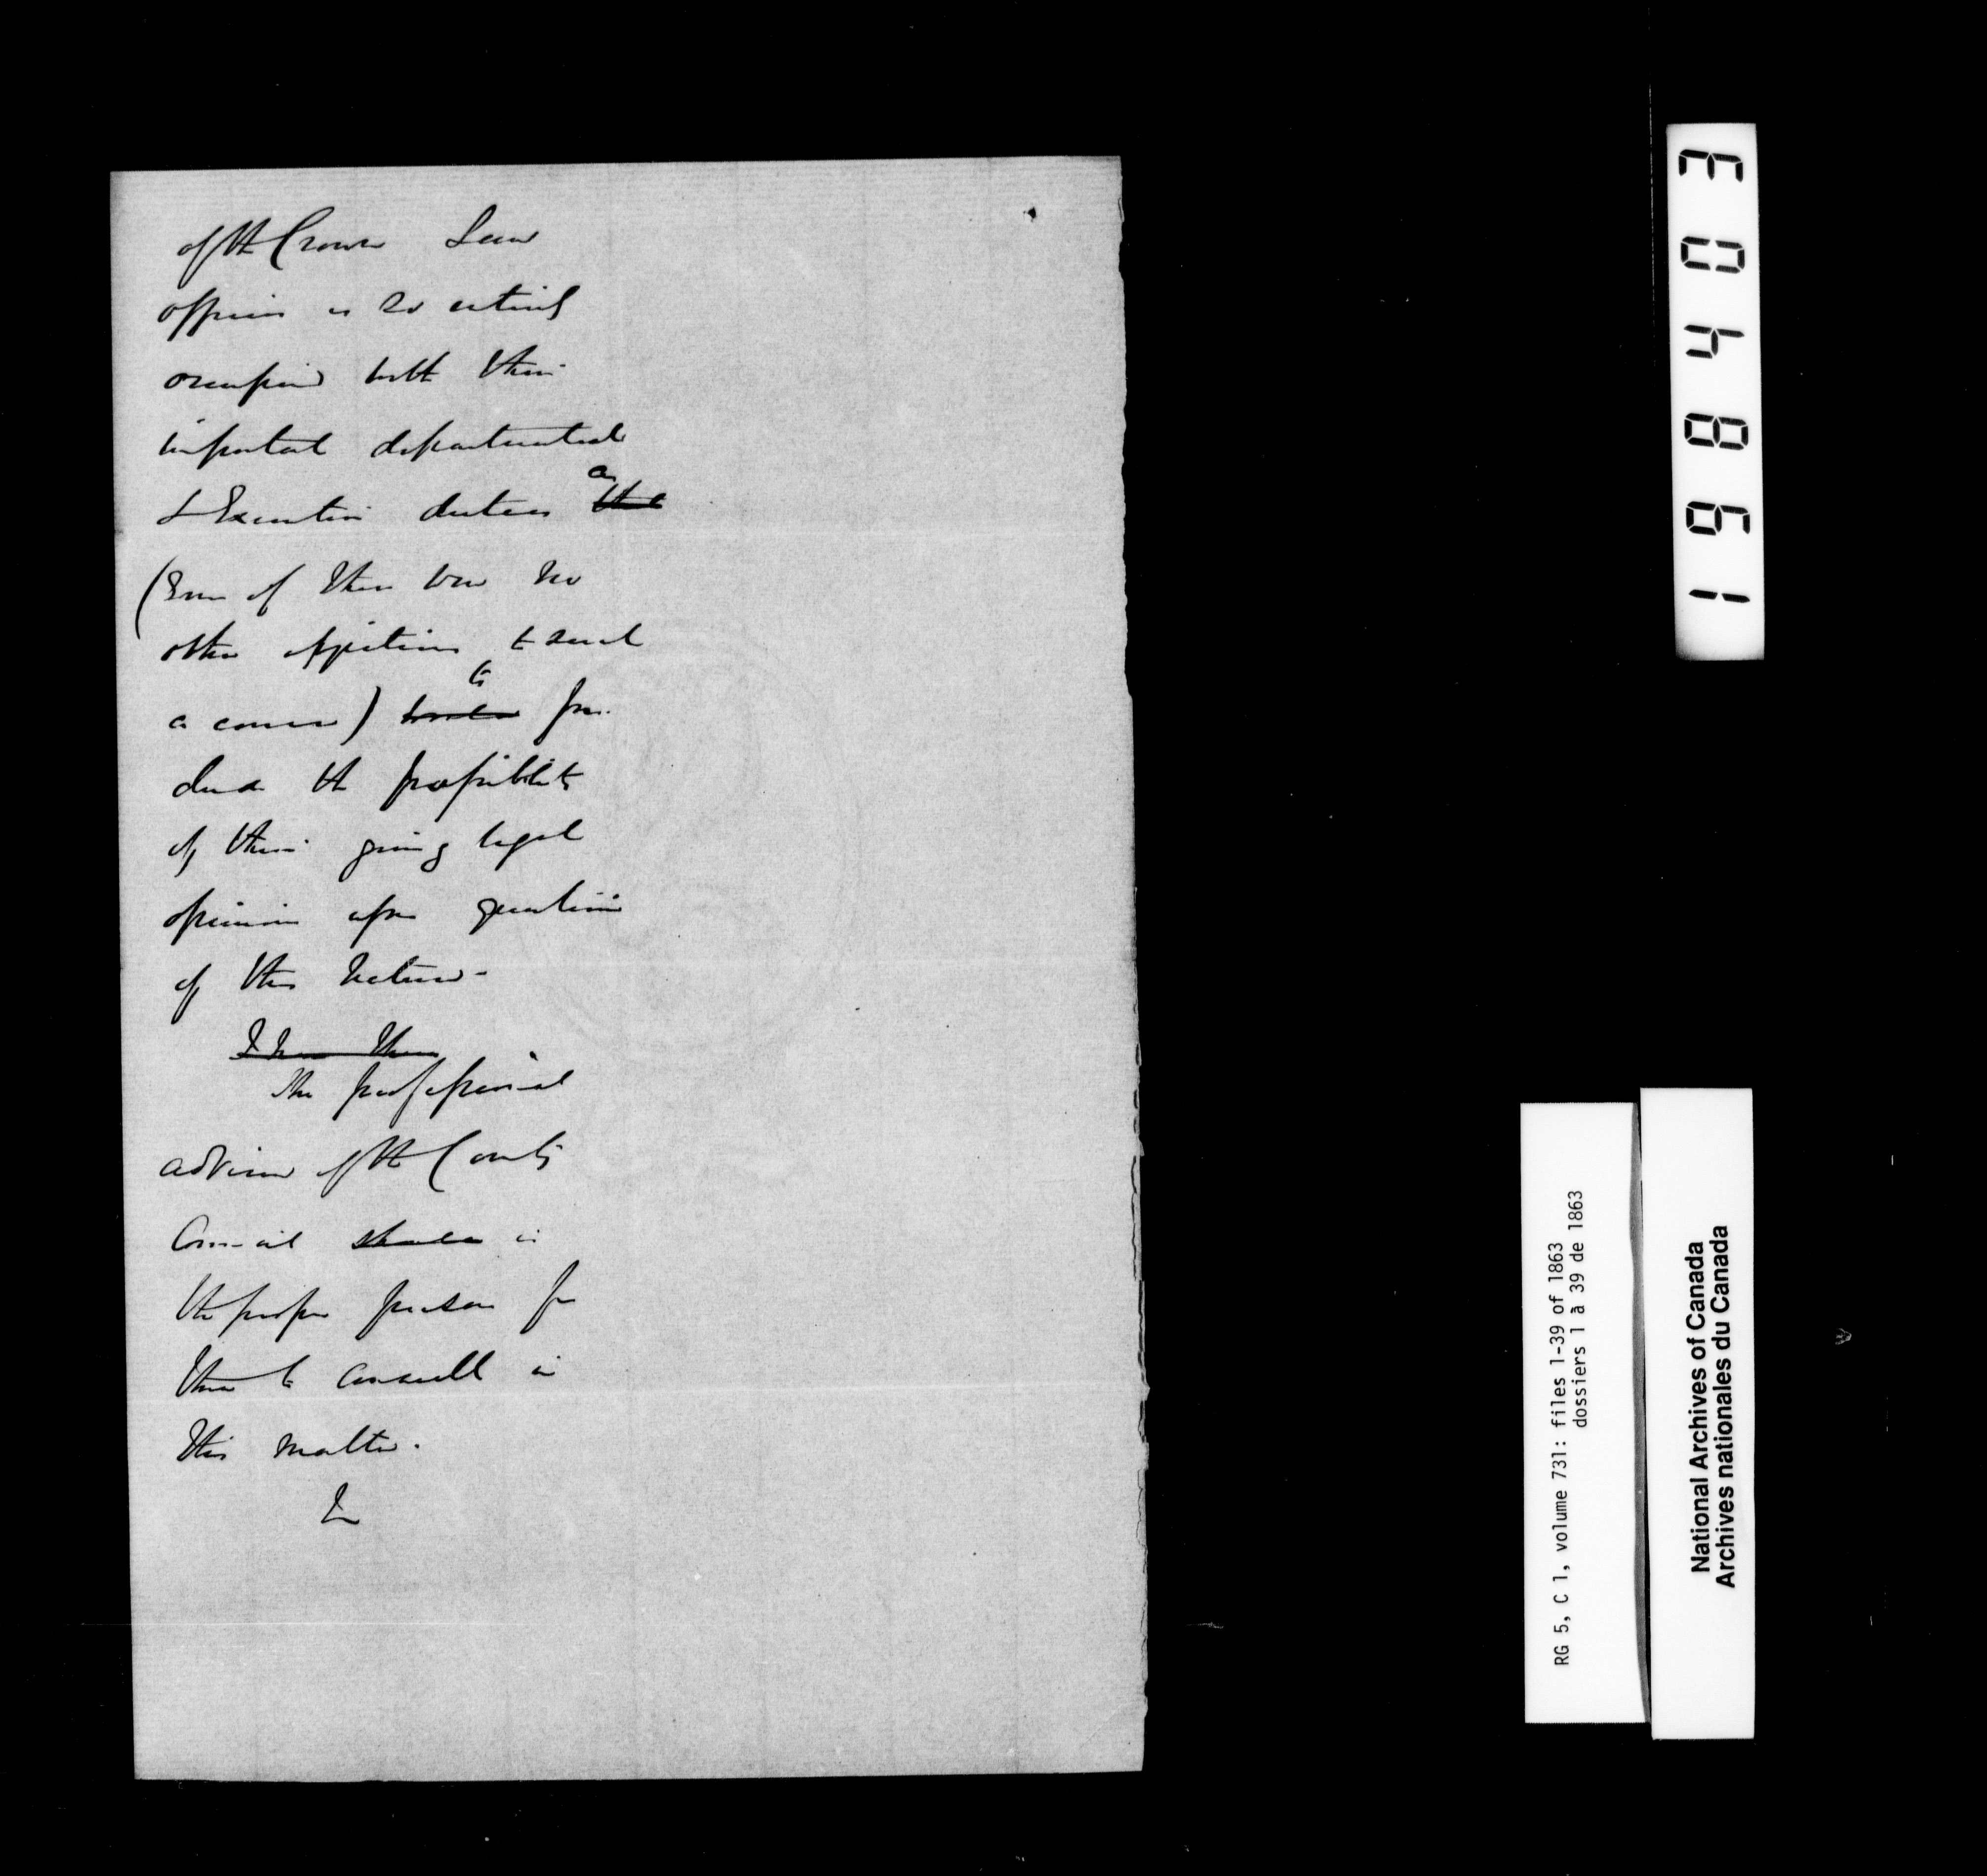 of the Crown Law
officers is so entirely
occupied with their
important departmental
& Executive duties as
that
(Even if there were no
other objections to such
a course) to pre-
clude the possibility
of their giving legal
opinions upon questions
of this nature -
I have there
The professional
adviser of the County
Council should is
the proper person for
them to consult in
this matter.
I
RG 5, C 1, volume 731: files 1-39 of 1863
dossiers 1 à 39 de 1863
National Archives of Canada
Archives nationales du Canada
168403